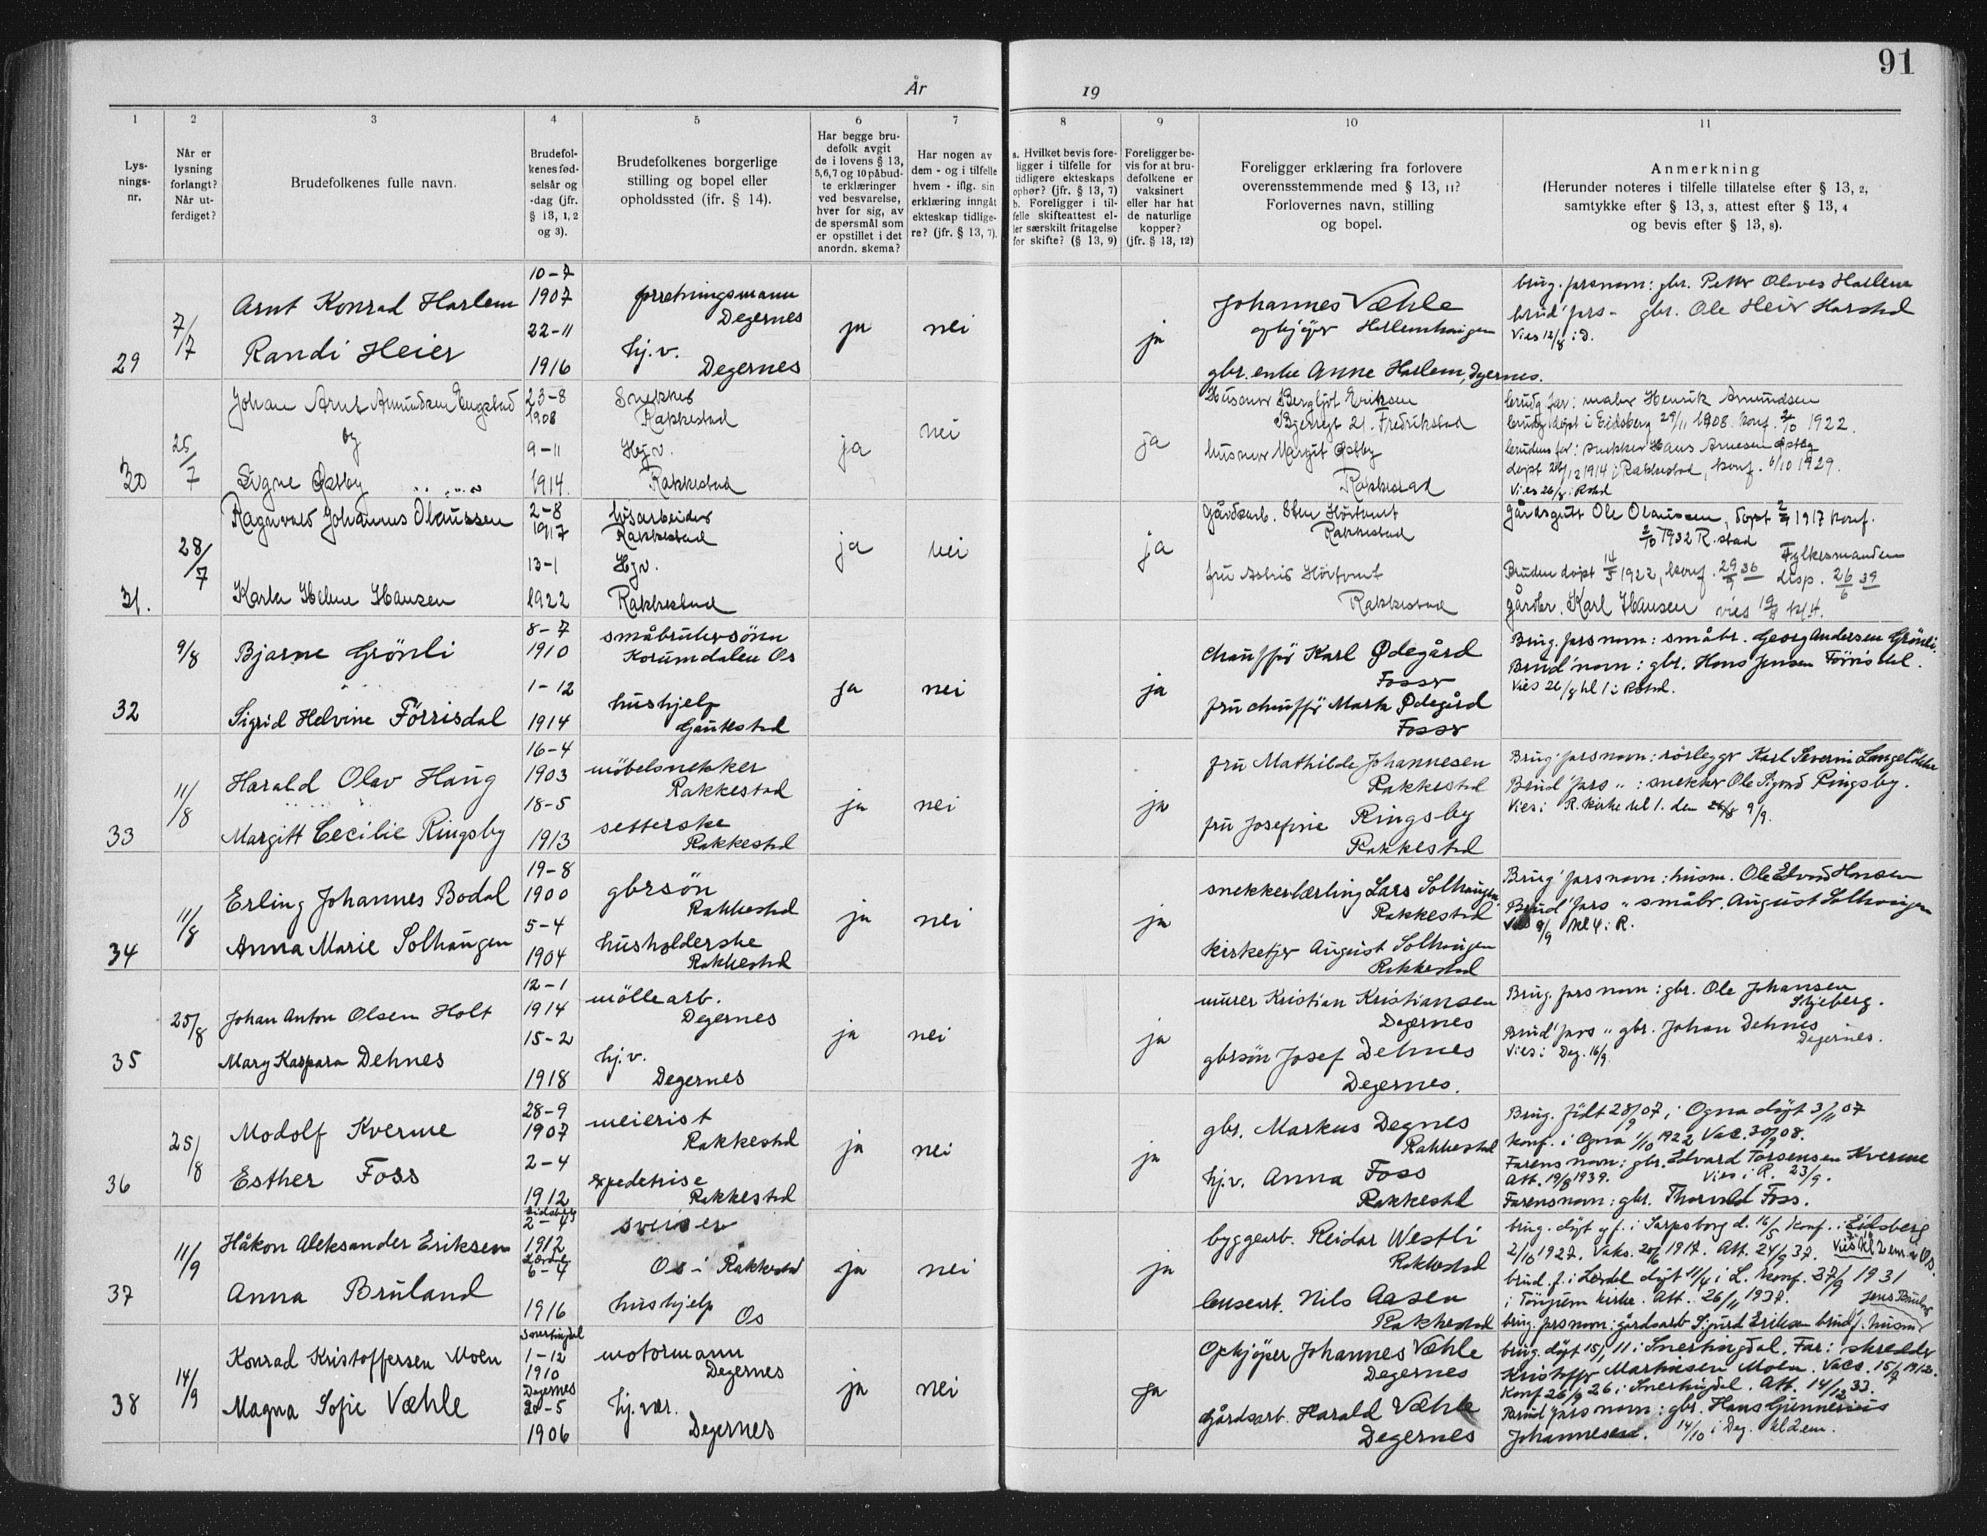 91
År 19
1 2 3 4 5 6 7 8 9 10 11
Lys-
nings-
nr.
Når er
lysning
forlangt?
Når ut-
ferdiget?
Brudefolkenes fulle navn.
Brudefol-
kenes fød-
selsår og
-dag (jfr.
§ 13, 1, 2
og 3).
Brudefolkenes borgerlige
stilling og bopel eller
opholdssted (jfr. § 14).
Har begge bru-
defolk avgit
de i lovens § 13,
5,6,7 og 10 påbud-
te erklæringer
ved besvarelse,
hver for sig, av
de spørsmål som
er opstillet i det
anordn. skema?
Har nogen av
dem - og i tilfelle
hvem - iflg. sin
erklæring inngåt
ekteskap tidlige-
re? (jfr. § 13, 7).
a. Hvilket bevis fore-
ligger i tilfelle for
tidligere ekteskaps
ophør? (jfr. § 13, 7)
b. Foreligger i til-
felle skifteattest el-
ler særskilt fritagelse
for skifte? (§ 13, 9)
Foreligger be-
vis for at bru-
defolkene er
vaksinert
eller har hat
de naturlige
kopper?
(jfr. § 13, 12)
Foreligger erklæring fra forlovere
overensstemmende med § 13, 11?
Forlovernes navn, stilling
og bopel.
Anmerkning
(Herunder noteres i tilfelle tillatelse efter § 13, 2,
samtykke efter § 13, 3, attest efter § 13, 4
og bevis efter § 13, 8).
29
7/7
Arnt Konrad Harlem
Randi Heier
10-7
1907
22-11
1916
forretningsmann
Degernes
hj.v.
Degernes
ja
nei
ja
Johannes Væhle
opkjøper Harlemhaugen
gbr. enke Anne Harlem, Degernes.
brug. farsnavn: gbr. Petter Olaves Harlem
brud' fars - gbr. Ole Heier Harstad
Vies 12/8 i D.
30
25/7
Johan Arnt Amundsen Engstad
og
Signe Østby
23-8
1908
9-11
1914.
Snekker
Rakkestad
Hj.v.
Rakkestad
ja
nei
ja
Husmor Bergljot Eriksen
Bjerregt 21. Fredrikstad
husmor Margit Østby
Rakkestad
brudg far: maler Henrik Amundsen
brudg døpt i Eidsberg 29/11 1908. konf. 2/10 1922.
brudens far: snekker Hans Arnesen Østby
døpt 26/12 1914 i Rakkestad, konf. 6/10 1929.
Vies 26/8 i Rstad
31.
28/7
Ragnvald Johannes Olaussen
Karla Helene Hansen
2-8
1917
13-1
1922
løsarbeider
Rakkestad
Hjv.
Rakkestad
ja
nei
ja
Gårdsarb. Sten Hörtvmt
Rakkestad
fru Astrid Hörtvmt
Rakkestad
gårdsgutt Ole Olaussen, døpt 2/9 1917 konf.
2/10 1932 R.stad
Bruden døpt 14/5 1922, konf. 29/9 36
Fylkesmanden
disp. 26/6 39
gårdbr. Karl Hansen vies 19/8 kl 4.
32
9/8
Bjarne Grönli
Sigrid Helvine Förrisdal
8-7
1910
1-12
1914
småbrukersönn
Korumdalen Os
hushjelp
Gautestad
ja
nei
ja
chauffør Karl Ødegård
Fosser
fru chauffør Marta Ødegård
Fosser
Brug. farsnavn: småbr. Georg Andersen Grönli.
Brud' navn: gbr. Hans Jensen Förrisdal.
Vies 26/8 kl 1 i Rstad.
33
11/8
Harald Olav Haug
Margitt Cecilie Ringsby
16-4
1903
18-5
1913
möbelsnekker
Rakkestad
setterske
Rakkestad
ja
nei
ja
fru Mathilde Johannesen
Rakkestad
fru Josefine Ringsby
Rakkestad
Brug' farsnavn: rörlegger Karl Severin Langeløkke
Brud' fars " : snekker Ole Sigvard Ringsby.
Vies i R. kirke kl 1. den 26/8 9/9.
34
11/8
Erling Johannes Bodal
Anna Marie Solhaugen
19-8
1900
5-4
1904
gbrsön
Rakkestad
husholderske
Rakkestad
ja
nei
ja
snekkerlærling Lars Solhaugen
Rakkestad
kirketjener August Solhaugen
Rakkestad
Brug' farsnavn: husm. Ole Edvard Hansen
Brud' fars " småbr. August Solhaugen
Vies 9/9 kl 4 i R.
35
25/8
Johan Anton Olsen Holt
Mary Kaspara Dehnes
12-1
1914
15-2
1918
möllearb.
Degernes
hj.v.
Degernes
ja
nei
ja
murer Kristian Kristiansen
Degernes
gbrsön Josef Dehnes
Degernes.
Brug. farsnavn: gbr. Ole Johansen
Skjeberg.
Brud' fars " gbr. Johan Dehnes
Degernes.
Vies i Deg. 16/9.
36
25/8
Modolf Kverme
Esther Foss
28-9
1907
2-4
1912
meierist
Rakkestad
expeditrise
Rakkestad
ja
nei
ja
gbr. Markus Degnes
Rakkestad
hj.v. Anna Foss
Rakkestad
Brug. født 28/9 07, i Ogna döpt 3/11 07
konf. i Ogna 1/10 1922 Vac. 30/9 08.
Farens navn: gbr. Edvard Torsensen Kverme
Att. 19/8 1939. Vies i R. 23/9.
Farens navn: gbr. Thorvald Foss.
37
11/9
Håkon Aleksander Eriksen
Anna Bruland
Eidsberg
2-4
1912
Lærdal
6-4
1916
sveiser
Os i Rakkestad
hushjelp
Os
ja
nei
ja
byggearb. Reidar Westli
Rakkestad
bensent. Nils Aasen
Rakkestad
brug. döpt g f. i Sarpsborg d. 16/5 konf. i Eidsberg
2/10 1927. Vaks. 20/6 1917. Att. 24/9 37. Vies kl 2 em. i Os.
brud. f. i Lærdal döpt 11/4 i L. konf. 27/9 1931
i Tönjum kirke. Att. 26/11 1937. Jens Bruland
brug. farsnavn: gårdsarb Sigurd Eriksen brud f. husm
38
14/9
Konrad Kristoffersen Moen
Magna Sofie Væhle
Snertingdal
1-12
1910
Degernes
20-5
1906
motormann
Degernes
hj.vær.
Degernes
ja
nei
ja
Opkjöper Johannes Væhle
Degernes
Gårdsarb. Harald Væhle
Degernes
brug. döpt 15/1 11 i Snertingdal. Far: skredder
Kristoffer Martinsen Moen. Vacs. 15/9 1912.
Konf 26/9 26 i Snertingdal. Att. 14/12 33.
Brud' farsnavn: gbr. Hans Gunnerius
Johannesen. 14/10 i Deg. kl 2 em.